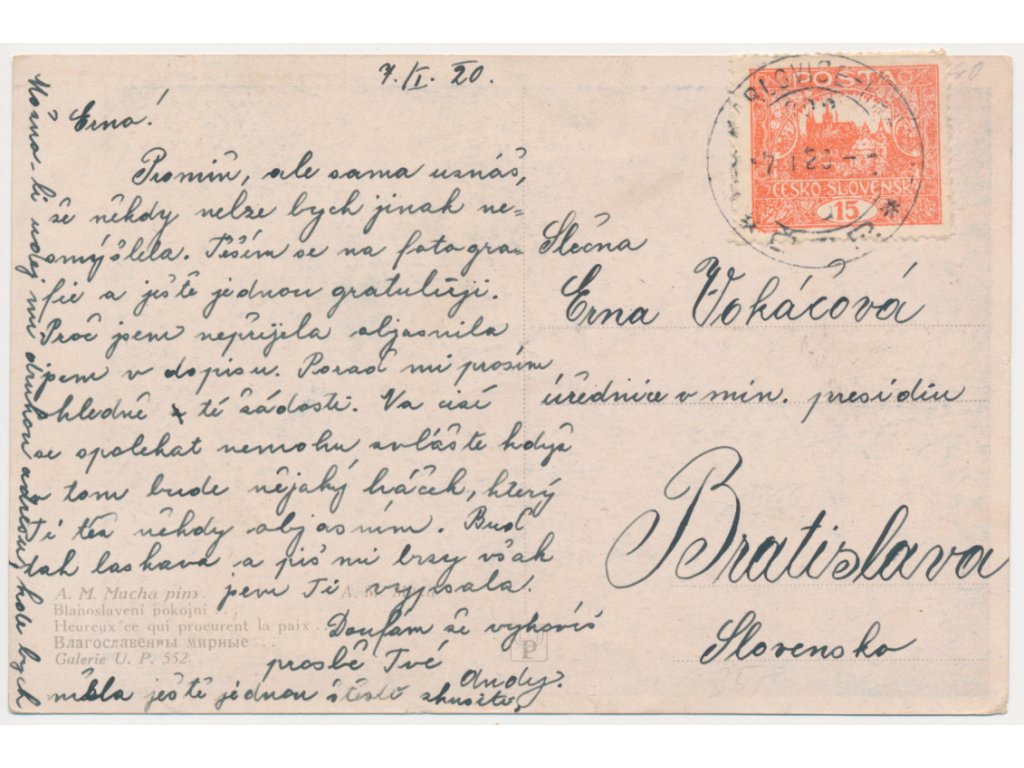 7./I. 20.
Erno!
Promiň, ale sama uznáš,
že někdy nelze bych jinak ne-
smýšlela. Těším se na fotogra-
fie a ještě jednou gratuluji.
Proč jsem nepřijela objasnila
jsem v dopisu. Porad mi prosím
ohledně té žádosti. Na cizí
se spolehat nemohu zvláště když
v tom bude nějaký háček, který
Ti též někdy objasním. Buď
tak laskava a piš mi brzy však
jsem Ti vypsala.
Doufám že vyhovíš
prosbě Tvé
Andy.
Možno-li udej mi druhou adresu, kde bych
měla ještě jednou štěstí zkusiti.
Slečna
Erna Vokáčová
úřednice v min. presidiu
Bratislava
Slovensko
POŠTA
ČESKO-SLOVENSKÁ
15
A. M. Mucha pinx.
Blahoslavení pokojní . . .
Heureux ce qui procurent la paix .
Благославенны мирные . . .
Galerie U. P. 552.